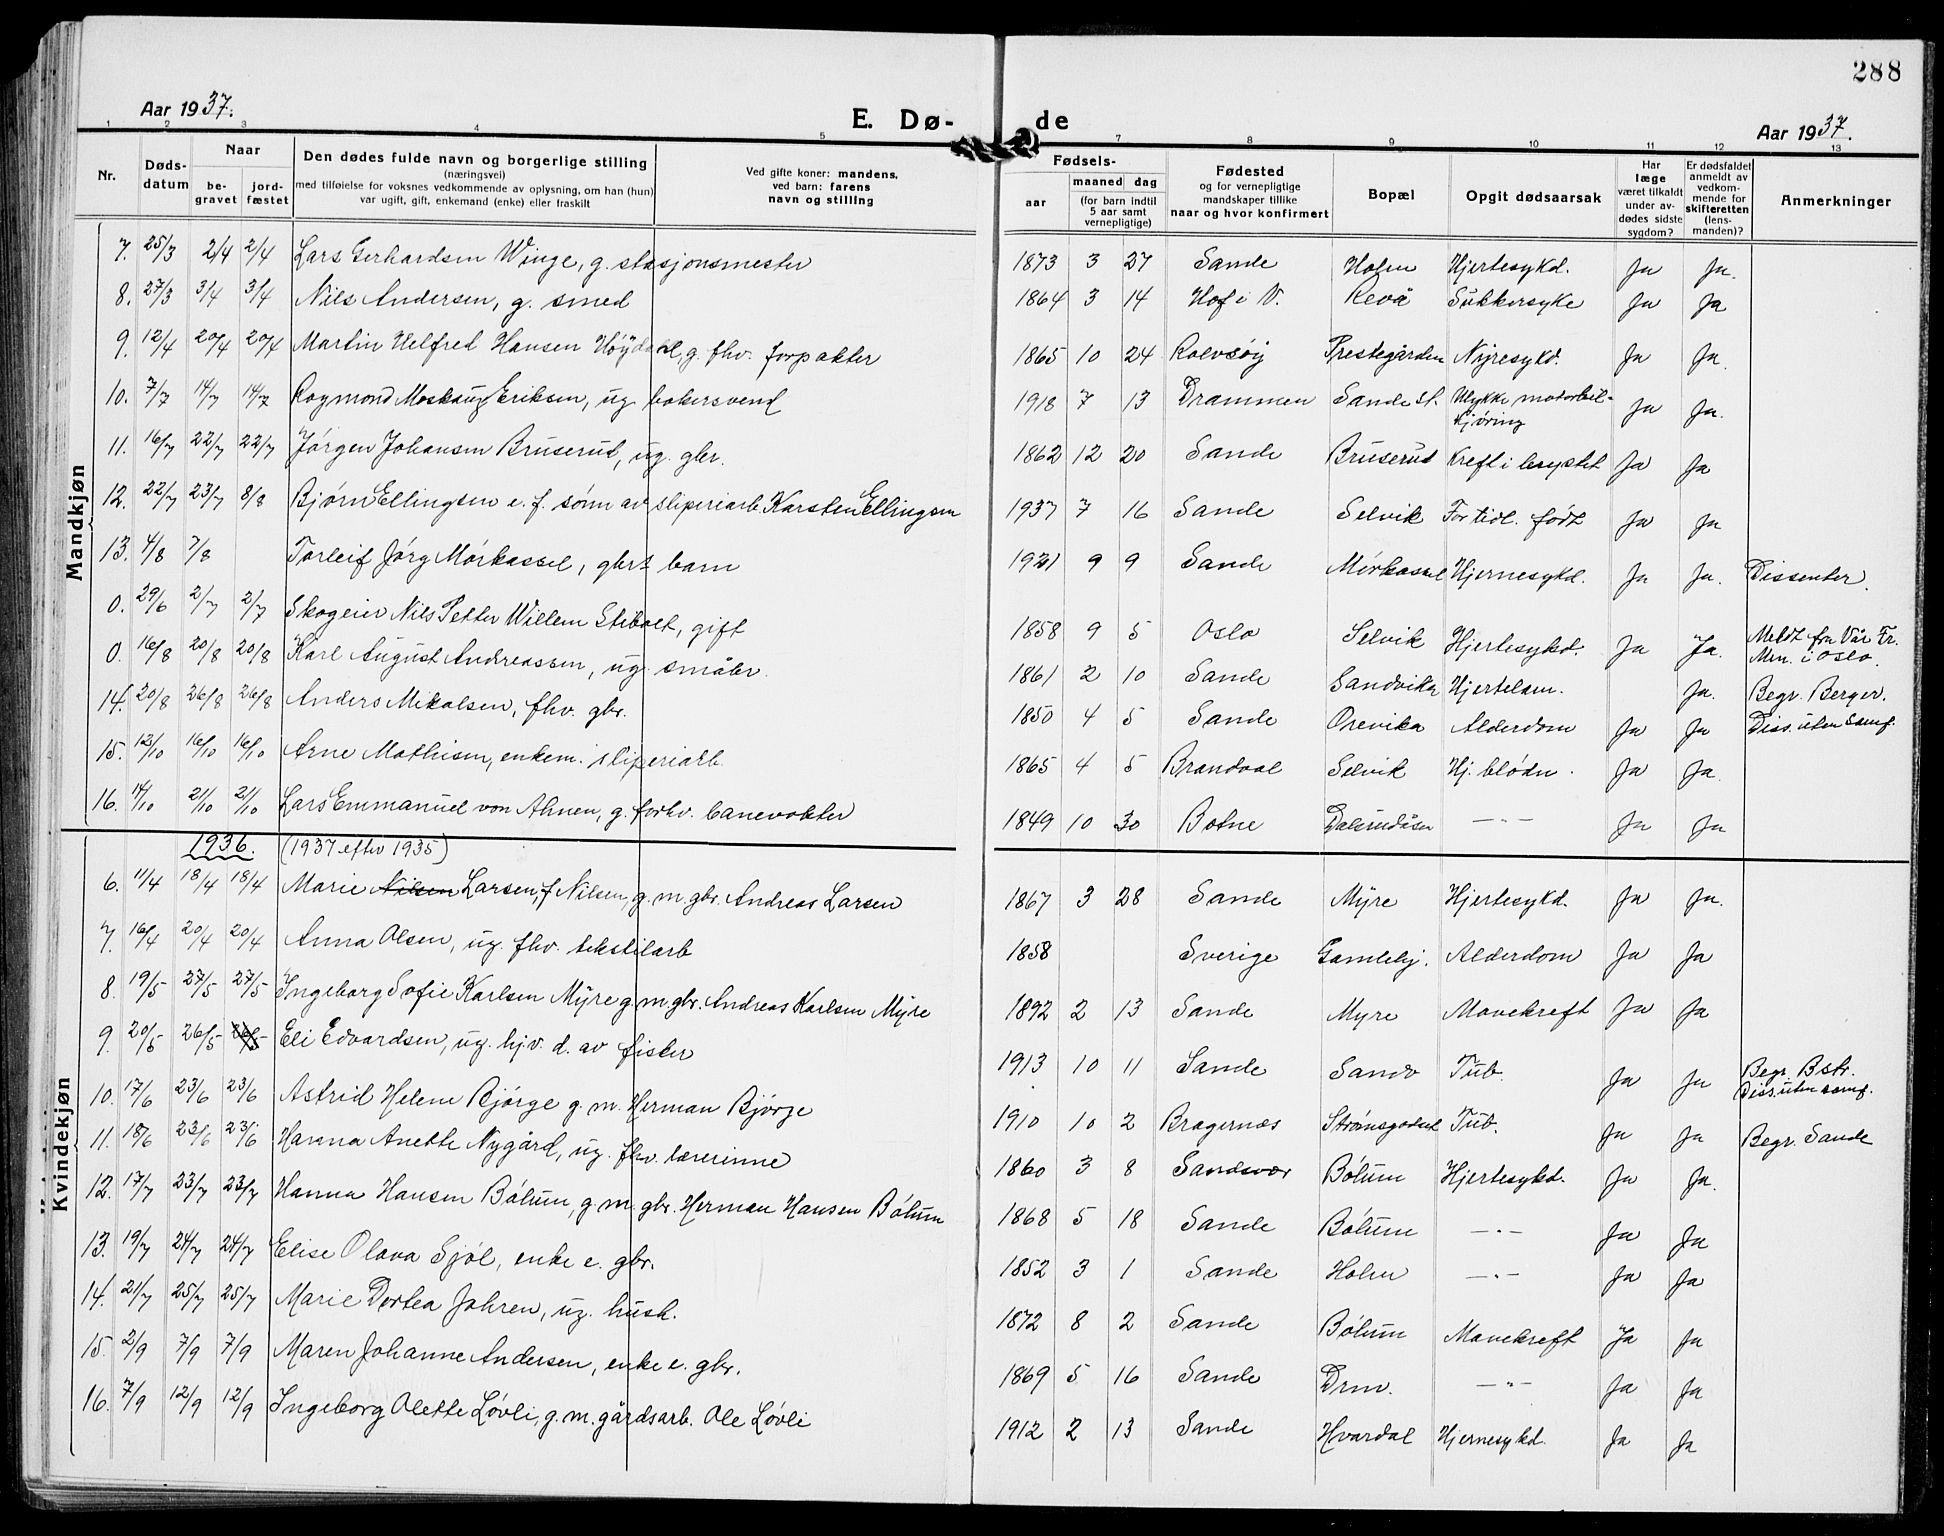 288
Aar 1937. E. Dø- de Aar 1937.
1 2 3 4 5 7 8 9 10 11 12 13
Nr. Døds-datum Naar be-gravet jord-fæstet Den dødes fulde navn og borgerlige stilling (næringsvei) med tilføielse for voksnes vedkommende av oplysning, om han (hun) var ugift, gift, enkemand (enke) eller fraskilt Ved gifte koner: mandens, ved barn: farens navn og stilling Fødsels- aar maaned dag (for barn indtil 5 aar samt vernepligtige) Fødested og for vernepligtige mandskaper tillike naar og hvor konfirmert Bopæl Opgit dødsaarsak Har læge været tilkaldt under av-dødes sidste sygdom? Er dødsfaldet anmeldt av vedkom-mende for skifteretten (lens-manden)? Anmerkninger
Mandkjøn
7. 25/3 2/4 2/4 Lars Gerhardsen Winge, g. stasjonsmester 1873 3 27 Sande Holm Hjertesykd. Ja Ja.
8. 27/3 3/4 3/4 Nils Andersen, g. smed 1864 3 14 Hof i V. Revå Sukkersyke Ja Ja
9. 12/4 20/4 20/4 Martin Helfred Hansen Høydahl, g. fhv. forpakter 1865 10 24 Rolvsøy Prestegården Nyresykd. Ja Ja.
10. 7/7 14/7 14/7 Raymond Moskaug Eriksen, ug. bakersvend 1918 7 13 Drammen Sande st. Ulykke motorbil-kjøring Ja Ja.
11. 16/7 22/7 22/7 Jørgen Johansen Bruserud, ug. gbr. 1862 12 20 Sande Bruserud Kreft i brystet Ja Ja
12. 22/7 23/7 8/8 Bjørn Ellingsen e. f. sønn av sliperiarb. Karsten Ellingsen 1937 7 16 Sande Selvik For tidl. født Ja Ja
13. 4/8 7/8 Torleif Jörg Mørkassel, gbrs barn 1931 9 9 Sande Mørkassel Hjernesykd. Ja Ja. Dissenter.
0. 29/6 2/7 2/7 Skogeier Nils Petter Willem Stibolt, gift 1858 9 5 Oslo Selvik Hjertesykd. Ja Ja. Meldt fra Vår Fr. Mrn. i Oslo.
0. 16/8 20/8 20/8 Karl August Andreassen, ug. småbr. 1861 2 10 Sande Sandvika Hjertelam. Ja. Begr. Berger.
14. 20/8 26/8 26/8 Anders Mikalsen, fhv. gbr. 1850 4 5 Sande Orevika Alderdom Ja Ja Diss. uten samf.
15. 12/10 16/10 16/10 Arne Mathisen, enkem. sliperiarb. 1865 4 5 Brandval Selvik Hj. blødn. Ja Ja.
16. 14/10 21/10 21/10 Lars Emmanuel von Ahnen, g. forhv. banevokter 1849 10 30 Botne Dalsrudåsen —"— Ja Ja
1936. (1937 efter 1935)
Kvindekjøn
6. 11/4 18/4 18/4 Marie Nilsen Larsen, f Nilsen, g. m. gbr. Andreas Larsen 1867 3 28 Sande Myre Hjertesykd. Ja Ja.
7. 16/4 20/4 20/4 Anna Olsen, ug. fhv. tekstilarb 1858 Sverige Gamlehj. Alderdom Ja Ja
8. 19/5 27/5 27/5 Ingeborg Sofie Karlsen Myre g. m. gbr. Andreas Karlsen Myre 1892 2 13 Sande Myre Mavekreft Ja Ja
9. 20/5 26/5 26/5 Eli Edvardsen, ug. hjv. d. av fisker 1913 10 11 Sande Sandv Tub. Ja Ja Begr. Bstr. Diss. uten samf.
10. 17/6 23/6 23/6 Astrid Helene Bjørge g. m. Herman Bjørge 1910 10 2 Bragernæs Strømsgodset Tub. Ja Ja Begr. Sande
11. 18/6 23/6 23/6 Hanna Anette Nygård, ug. fhv. lærerinne 1860 3 8 Sandsvær Bølum Hjertesykd. Ja Ja.
12. 17/7 23/7 23/7 Hanna Hansen Bølum, g. m. gbr. Herman Hansen Bølum 1868 5 18 Sande Bølum —"— Ja Ja
13. 19/7 24/7 24/7 Elise Olava Sjøl, enke e. gbr. 1852 3 1 Sande Holm —"— Ja Ja
14. 21/7 25/7 25/7 Marie Dortea Jahren, ug. hush. 1872 8 2 Sande Bølum Mavekreft Ja Ja
15. 2/9 7/9 7/9 Maren Johanne Andersen, enke e. gbr. 1869 5 16 Sande Drm. —"— Ja Ja
16. 7/9 12/9 12/9 Ingeborg Olette Løvli, g. m. gårdsarb. Ole Løvli 1912 2 13 Sande Hvardal Hjernesykd. Ja Ja